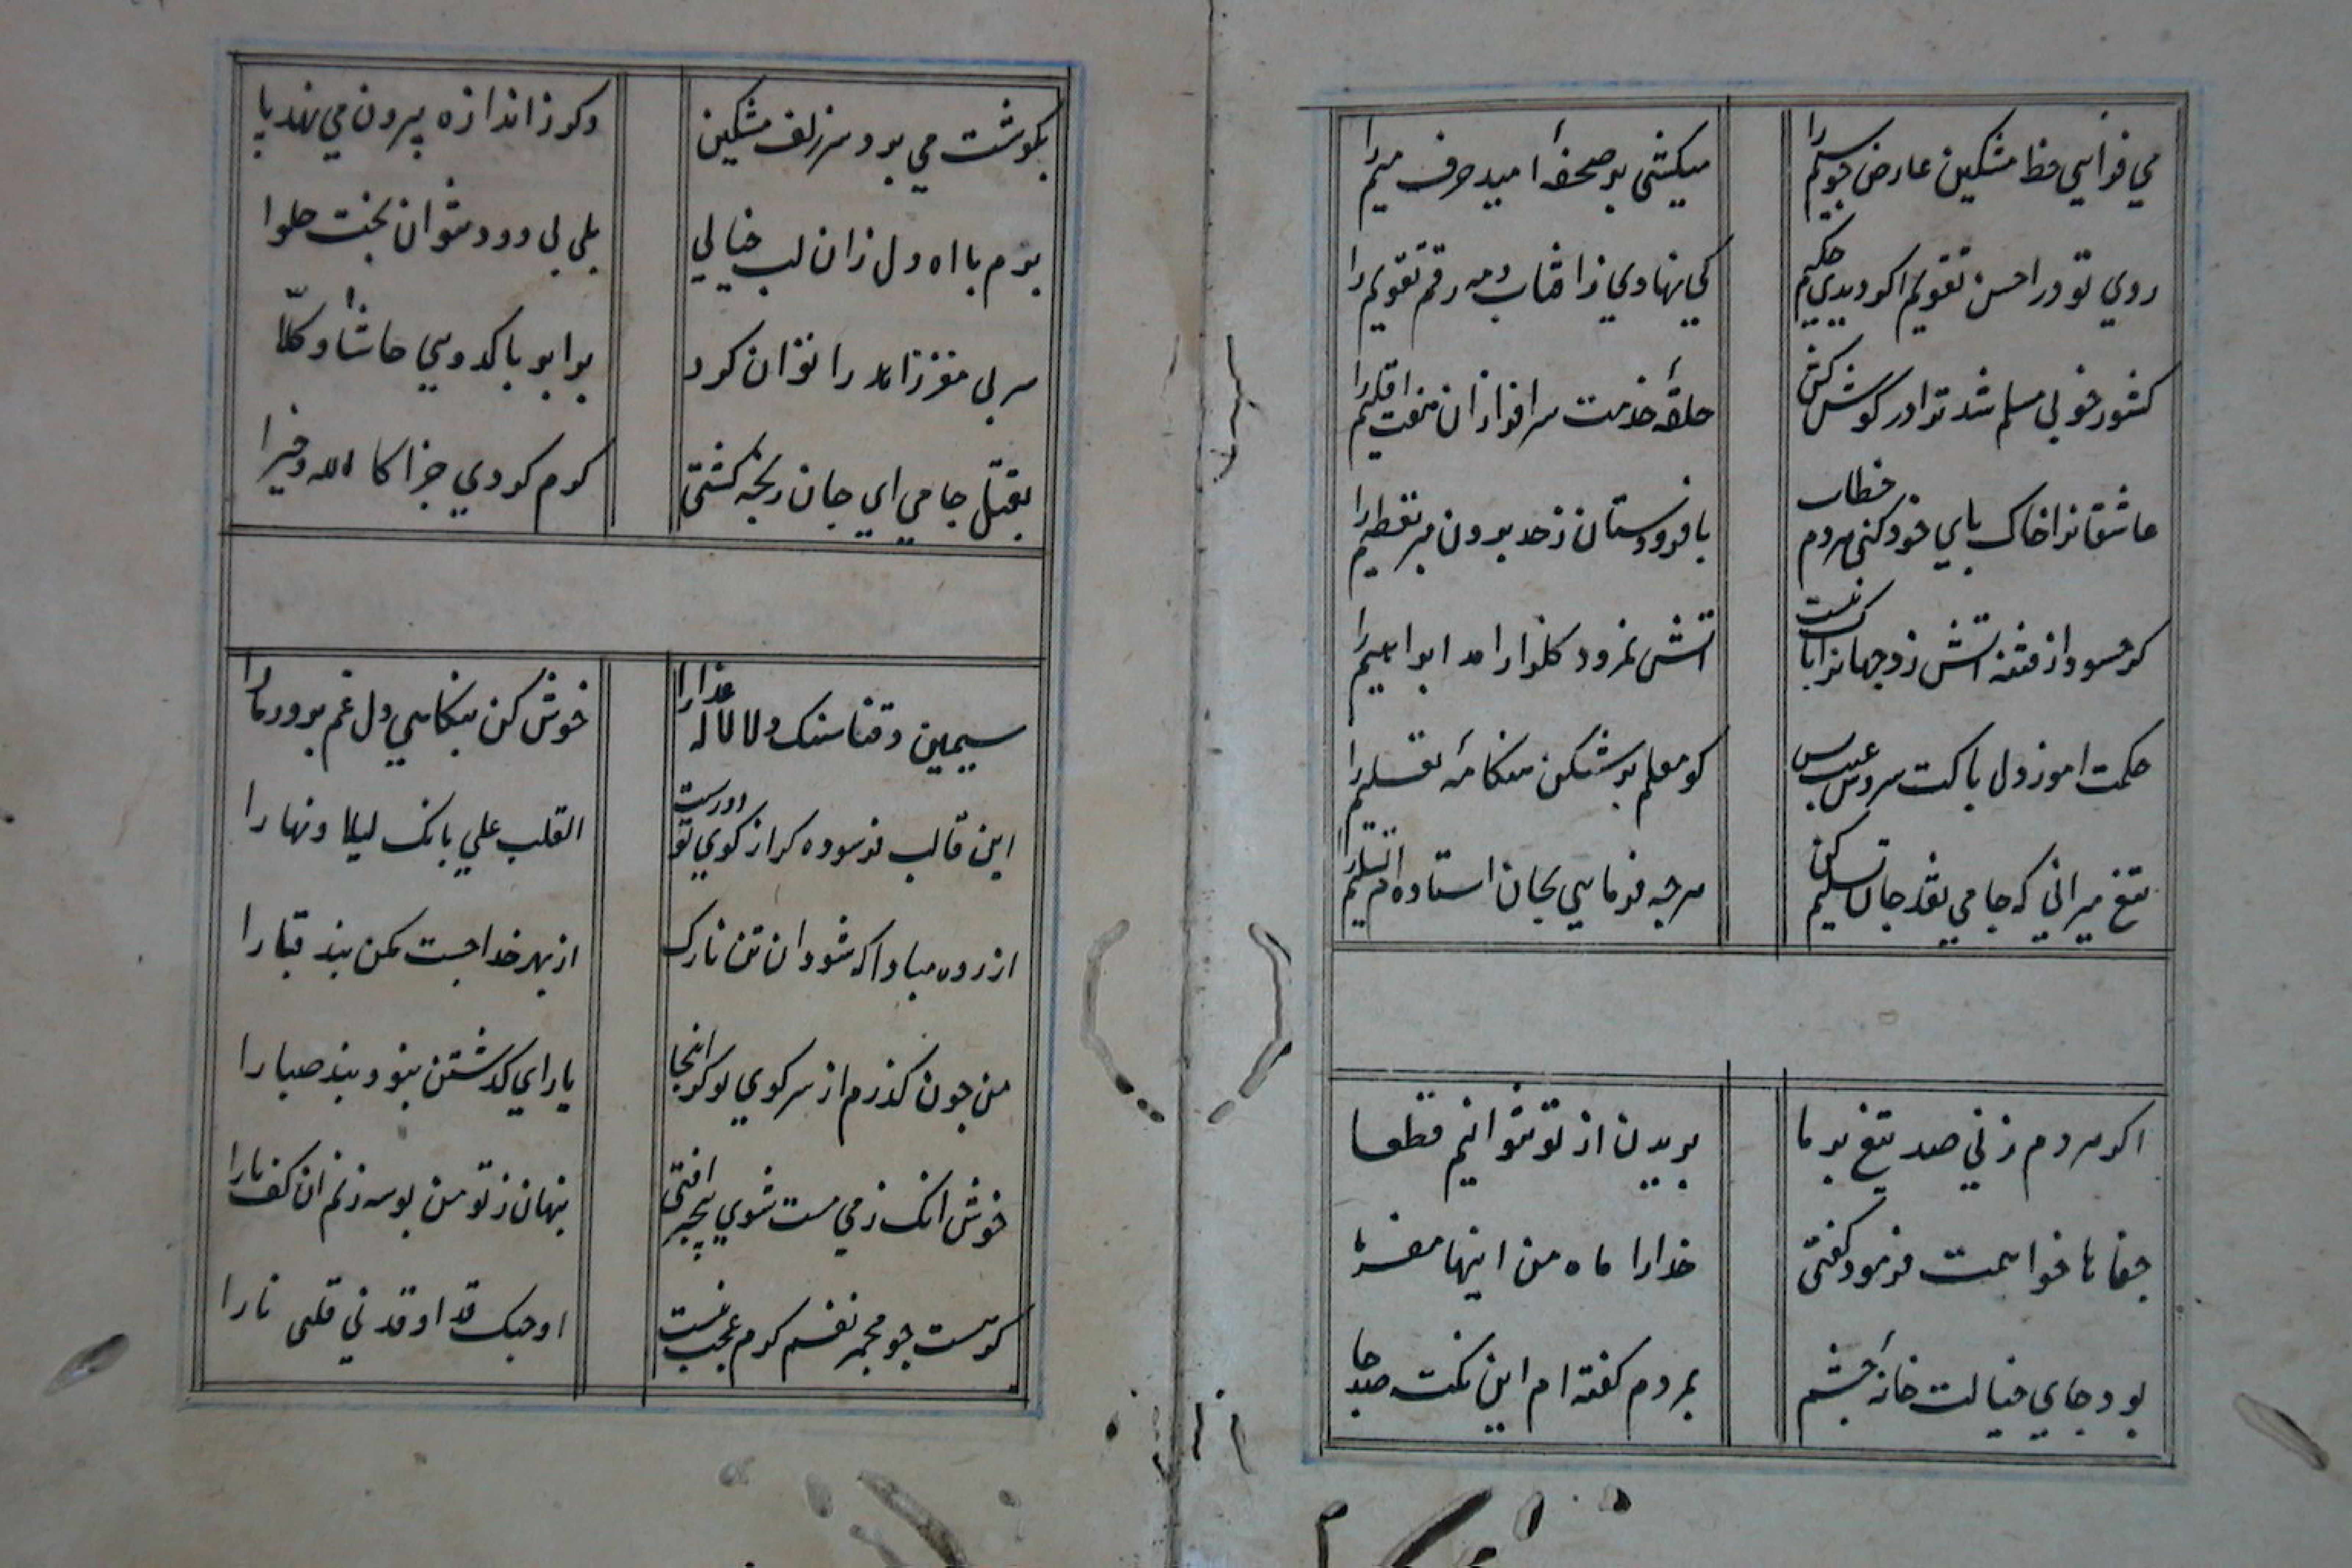 مي فزايي خط مشكين عارض چو سيم را
ميكشي بر صحفهٔ اميد حرف ميم را
روي تو در احسن تقويم اكر ديدي حكيم
كي نهادي ز افتاب و مه رقم تقويم را
كشور خوبي مسلم شد ترا در كوش كش
حلقهٔ خدمت سرافرازان هفت اقليم را
عاشقانرا خاك پاي خود كني مردم خطاب
با فرودستان ز حد بيرون مبر تعظيم را
كر حسود از فتنه اتش زد جهانرا باك نيست
اتش نمرود كلزار امد ابراهيم را
حكمت اموز دل پاكت سروش غيب بس
كو معلم بر شكن هنكامهٔ تعليم را
تيغ ميراني كه جامي نقد جان تسليم كن
هرچه فرمايي بجان استاده ام تسليم را
اكر هر دم زني صد تيغ بر ما
بريدن از تو نتوانيم قطعا
جفاها خواهمت فرمود كفتي
خدارا ماه من اينها مفرما
بود جاي خيالت خانهٔ چشم
بمردم كفته ام اين نكته صد جا
بكوشت مي برد سر زلف مشكين
دكر ز اندازه بيرون مي نهد پا
برم با اه دل زان لب خيالي
بلي بي دود نتوان پخت حلوا
سر بي مغز زاهد را توان كرد
برابر با كدويي حاشا و كلّا
بقتل جامي اي جان رنجه كشتي
كرم كردي جزاك الله خيرا
سيمين ذقنا سنك دلا لاله عذارا
خوش كن بنكاهي دل غم پرور ما را
اين قالب فرسوده كر از كوي تو دورست
القلب علي بابك ليلا و نهارا
ازرده مبادا كه شود ان تن نازك
از بهر خدا چست مكن بند قبا را
من چون كذرم از سر كوي تو كز انجا
ياراي كذشتن نبود بند صبا را
خوش انك ز مي مست شوي بيخبر افتي
پنهان ز تو من بوسه زنم ان كف پا را
كر هست چو مجمر نفسم كرم عجب نيست
او حبك قد اوقد ني قلبي نارا